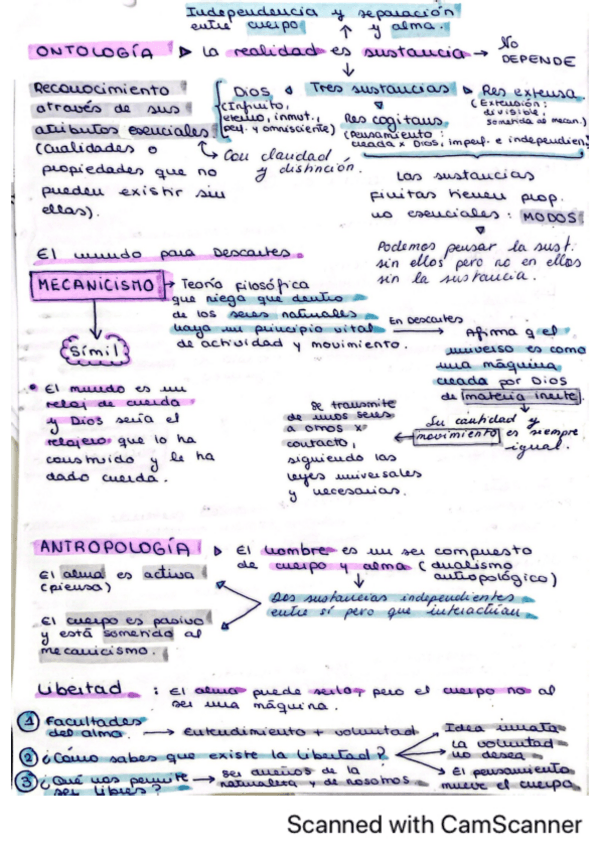 Independencia y separación
entre cuerpo y alma.
ONTOLOGÍA ▷ La realidad es sustancia → No
DEPENDE
Reconocimiento
através de sus
atributos esenciales
(cualidades o
propiedades que no
pueden existir sin
ellas).
Con claridad
y distinción.
Dios
(Infinito,
eterno, inmut.,
perf. y omnisciente)
Tres sustancias
Res cogitans
(Pensamiento:
creada x Dios, imperf. e independien.
Res extensa
(Extensión:
divisible,
sometida al mecan.)
Las sustancias
finitas tienen prop.
no esenciales: MODOS
Podemos pensar la sust.
sin ellos pero no en ellos
sin la sustancia.
El mundo para Descartes.
MECANICISMO → Teoría filosófica
que niega que dentro
de los seres naturales
haya un principio vital
de actividad y movimiento.
En Descartes
Afirma q el
universo es como
una máquina
creada por Dios
de materia inerte.
Su cantidad y
movimiento es siempre
igual.
Se transmite
de unos seres
a otros x
contacto,
siguiendo las
leyes universales
y necesarias.
Símil
• El mundo es un
reloj de cuerda
y Dios sería el
relojero que lo ha
construido y le ha
dado cuerda.
ANTROPOLOGÍA ▷ El hombre es un ser compuesto
de cuerpo y alma (dualismo
antropológico)
Dos sustancias independientes
entre sí pero que interactúan
El alma es activa
(piensa)
El cuerpo es pasivo
y está sometido al
mecanicismo.
Libertad : El alma puede serlo, pero el cuerpo no al
ser una máquina.
1 Facultades
del alma. → Entendimiento + voluntad
2 ¿Cómo sabes que existe la libertad?
Idea innata
La voluntad
no desea
El pensamiento
mueve el cuerpo
3 ¿Qué nos permite
ser libres? → Ser dueños de la
naturaleza y de nosotros
Scanned with CamScanner